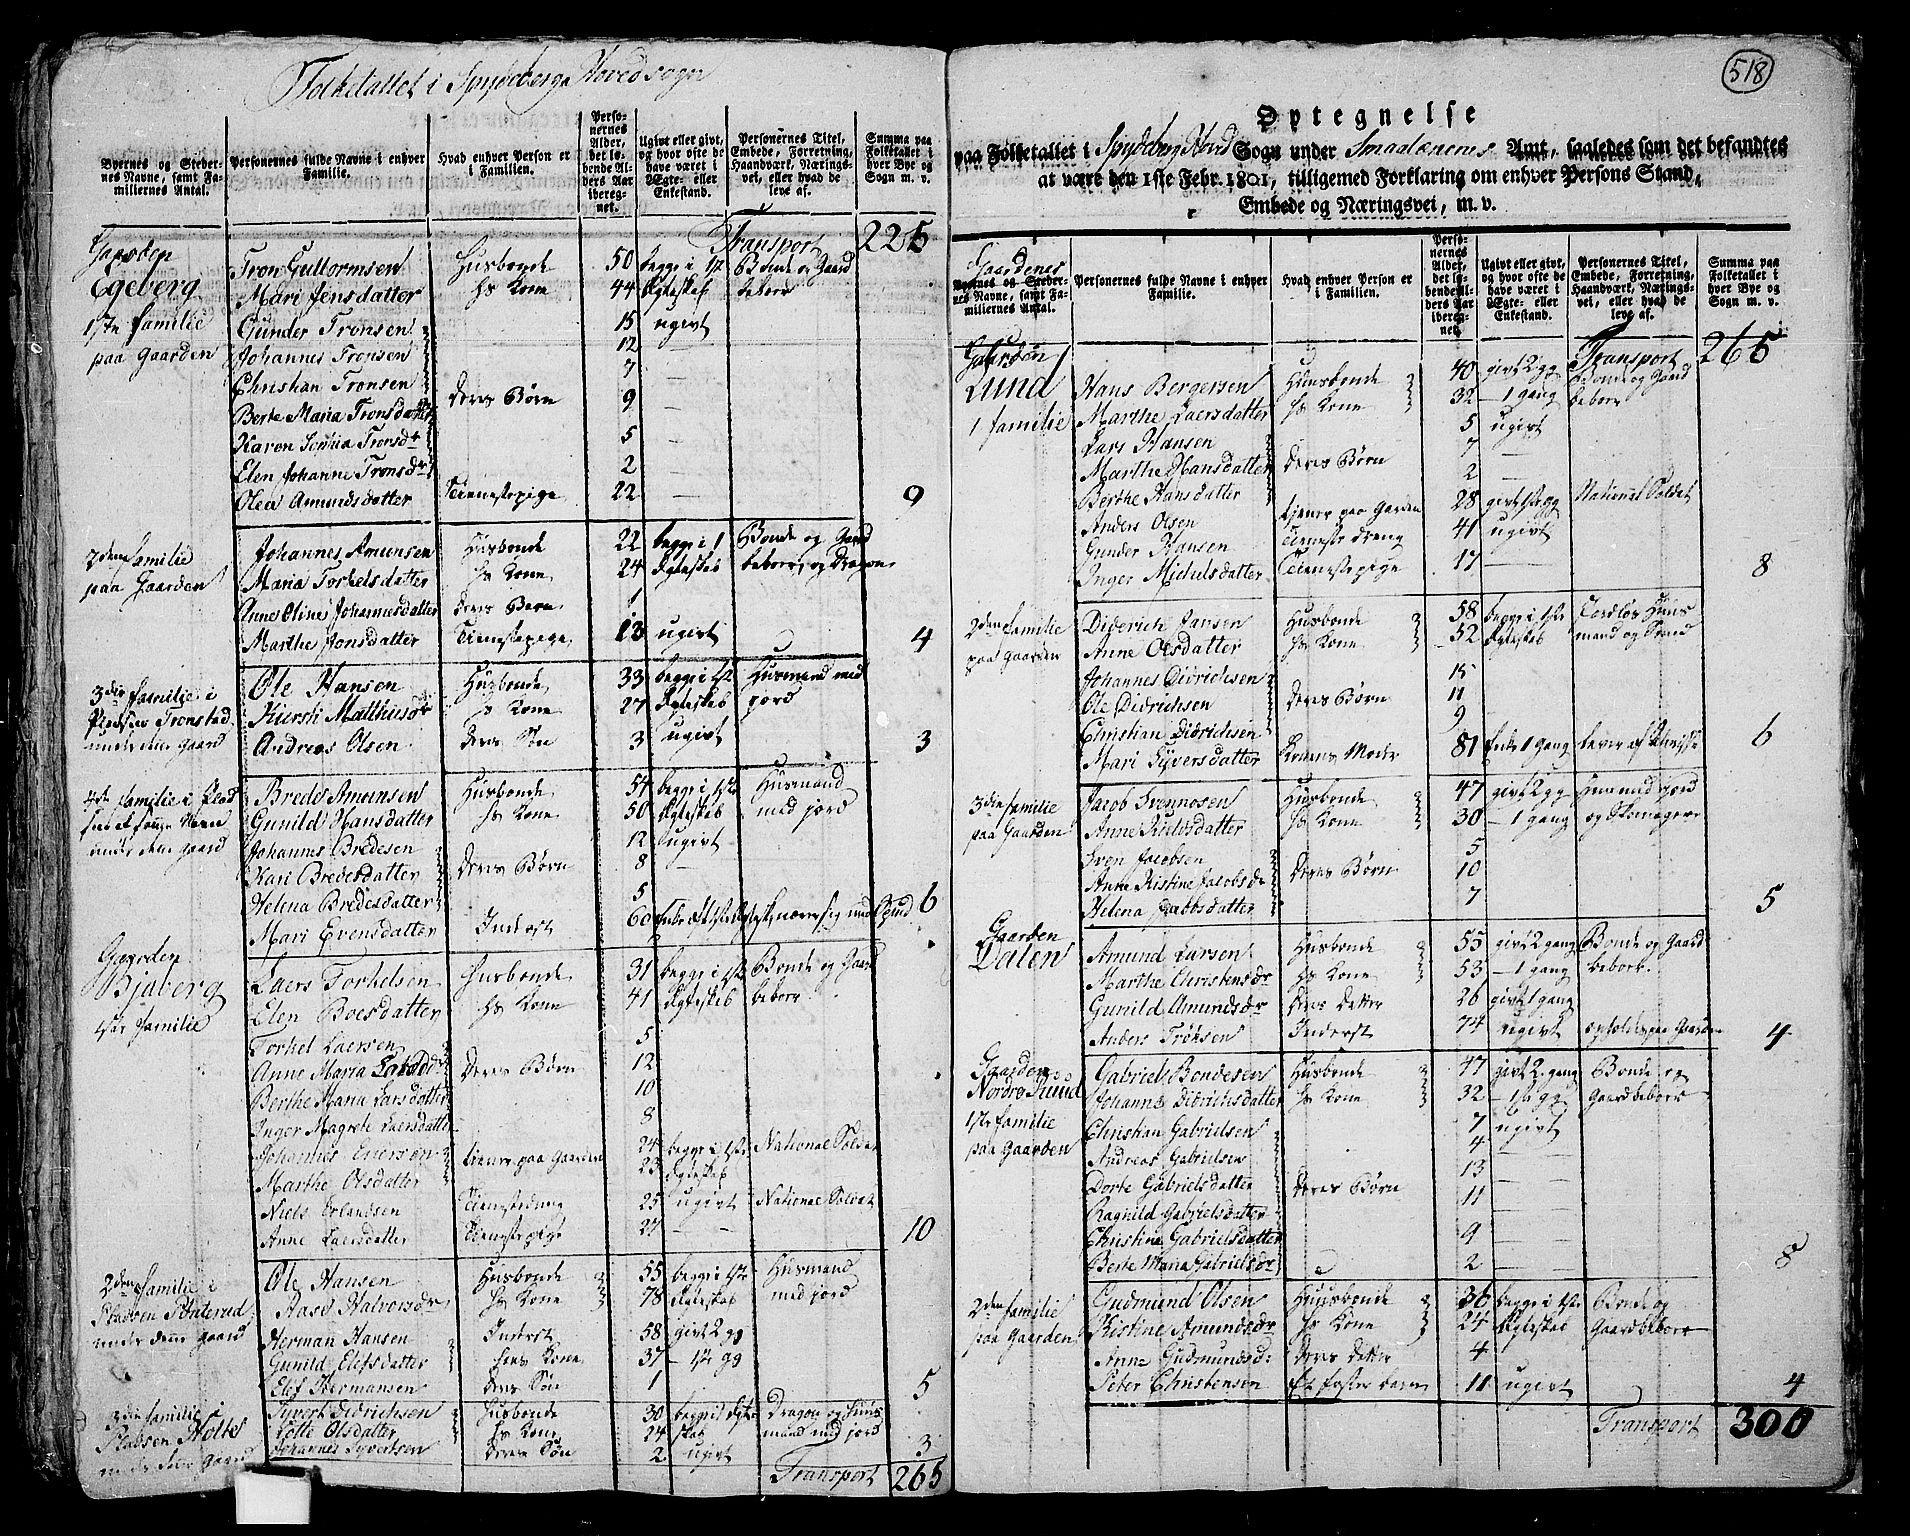 Folketallet i Spydeberga Hovedsogn
Byernes og Stedernes Navne, samt Familiernes Antal.
Personernes fulde Navne i enhver Familie.
Hvad enhver Person er i Familien.
Personernes Alder, det løbende Alders Aar iberegnet.
Ugivt eller givt, og hvor ofte de have været i Ægte- eller Enkestand.
Personernes Titel, Embede, Forretning, Haandværk, Nærings-vei, eller hvad de leve af.
Summa paa Folketallet i hver Bye og Sogn m. v.
Transport 225
Gaarden Egeberg
1ste familie paa Gaarden
Tron Guttormsen Husbonde 50 begge i 1ste Bonde og Gaard
Mari Jensdatter hs Kone 44 Egteskab beboer
Gunder Tronsen 15 ugivt
Johannes Tronsen 12 —
Christian Tronsen 7 —
Berte Maria Tronsdatter Deres Børn 9 —
Karen Sophia Tronsdr 5 —
Elen Johanne Tronsdr 2 —
Olea Amundsdatter Tienestepige 22 — 9
2den familie paa Gaarden
Johannes Amunsen Husbonde 22 begge i 1 Bonde og Gaard
Maria Torkelsdatter hs Kone 24 Egteskab beboer, og Dragon
Anne Oline Johannesdatter Deres Barn 1
Marthe Jonsdatter Tienestepige 13 ugivt 4
3die familie i Pladsen Tronstad under dene gaard
Ole Hansen Husbonde 33 begge i 1ste Husmand med
Kiersti Matthiesdr hs Kone 27 Egteskab jord
Andreas Olsen Deres Søn 3 ugivt 3
4de familie i Plad under dene gaard
Brede Amunsen Husbonde 54 begge i 1ste Husmand
Gunild Hansdatter hs Kone 50 Egteskab med jord
Johannes Bredesen 12 ugivt
Kari Bredesdatter Deres Børn 8
Helena Bredesdatter 5
Mari Evensdatter Inderst 60 nærer sig med Spind 6
Gaarden Bjaberg
1ste familie
Laers Torkelsen Husbonde 31 begge i 1ste Bonde og Gaard
Elen Boesdatter hs Kone 41 Egteskab beboer
Torkel Laersen 5
Anne Maria Deres Børn 12
Berthe Maria Larsdatter 10
Inger Magrete Laersdatter 8
Johannes Enersen tiener paa Gaarden 24 begge i 1ste National Soldat
Marthe Olsdatter 23 Egteskab
Niels Erlandsen Tienestedreng 25 ugivt National Soldat
Anne Laersdatter Tienestepige 27 — 10
2den familie i Pladsen under dene gaard
Ole Hansen Husbonde 55 begge i 1ste Husmand
Aase Halvorsdr hs Kone 78 Egteskab med jord
Herman Hansen Inderst 58 givt 2 gg
Gunild Elefsdatter hans Kone 37 — 1ste gg
Elef Hermansen Deres Søn 1 5
3die familie i Pladsen Holte under dene gaard
Syvert Didrichsen Husbonde 30 begge i Egte Dragon og Huus
Lotte Olsdatter hs Kone 24 skab mand med jord
Johannes Syvertsen Deres Søn 2 ugivt 3
Transport 265
518
Optegnelse
paa Folketallet i Spydeberg Hoved Sogn under Smaalenenes Amt, saaledes som det befandtes
at være den 1ste Febr. 1801, tilligemed Forklaring om enhver Persons Stand,
Embede og Næringsvei, m. v.
Gaardenes
Byernes og Stedernes Navne, samt Familiernes Antal.
Personernes fulde Navne i enhver Familie.
Hvad enhver Person er i Familien.
Personernes Alder, det løbende Alders Aar iberegnet.
Ugivt eller givt, og hvor ofte de have været i Ægte- eller Enkestand.
Personernes Titel, Embede, Forretning, Haandværk, Nærings-vei, eller hvad de leve af.
Summa paa Folketallet i hver Bye og Sogn m. v.
Transport 265
Gaarden Lund
1 familie
Hans Bergersen Huusbonde 40 givt 2 gg Bonde og Gaard
Marthe Laersdatter hs Kone 32 — 1 gang beboer
Lars Hansen 5 ugivt
Marthe Hansdatter Deres Børn 7 —
Berthe Hansdatter 2 —
Anders Olsen tiener paa Garden 28 givt 1ste gg National Soldat
Gunder Hansen Tieneste dreng 41 ugivt
Inger Michelsdatter Tienestepige 17 — 8
2den familie paa Gaarden
Diderich Jansen Husbonde 58 begge i 1ste Jordløs Huus
Anne Olsdatter hs Kone 52 Egteskab mand og
Johannes Didrichsen 15
Ole Didrichsen Deres Børn 11
Christian Didrichsen 9
Mari Syversdatter Konens Moder 81 Enke 1 gang lever af 6
3die familie paa Gaarden
Jacob Svennosen Husbonde 47 givt 2 gg Huusmed jord
Anne Nielsdatter hs Kone 30 — 1 gang og Skomager
Sven Jacobsen 5
Anne Kistine Jacobsdr Deres Børn 10
Helena Jacobsdatter 7 5
Gaarden Dalen
Amund Larsen Husbonde 55 givt 2 gang Bonde og Gaard
Marthe Christensdr hs Kone 53 — 1 gang beboer.
Gunild Amundsdr Deres Detter 26 givt 1 gang
Anders Trøksen Inderst 74 ugivt opholdes paa Gaarden 4
Gaarden Nordre Mund
1ste familie paa Gaarden
Gabriel Bondesen Husbonde 47 givt 2. gang Bonde og
Johanne Didrichsdatter hs Kone 32 — 1ste gg Gaardbeboer
Christian Gabrielsen 7 ugivt
Andreas Gabrielsen 4 —
Dorte Gabrielsdatter Deres Børn 13 —
Ragnild Gabrielsdatter 11 —
Christine Gabrielsdatter 9 —
Berte Maria Gabrielsdr 2 — 8
2den familie paa Gaarden
Gudmund Olsen Huusbonde 36 begge i 1ste Bonde og
Kistine Amundsdr hs Kone 24 Egteskab Gaardbeboer
Anne Gudmundsd: Deres Detter 4
Peter Christensen Et foster barn 11 ugivt 4
Transport 300